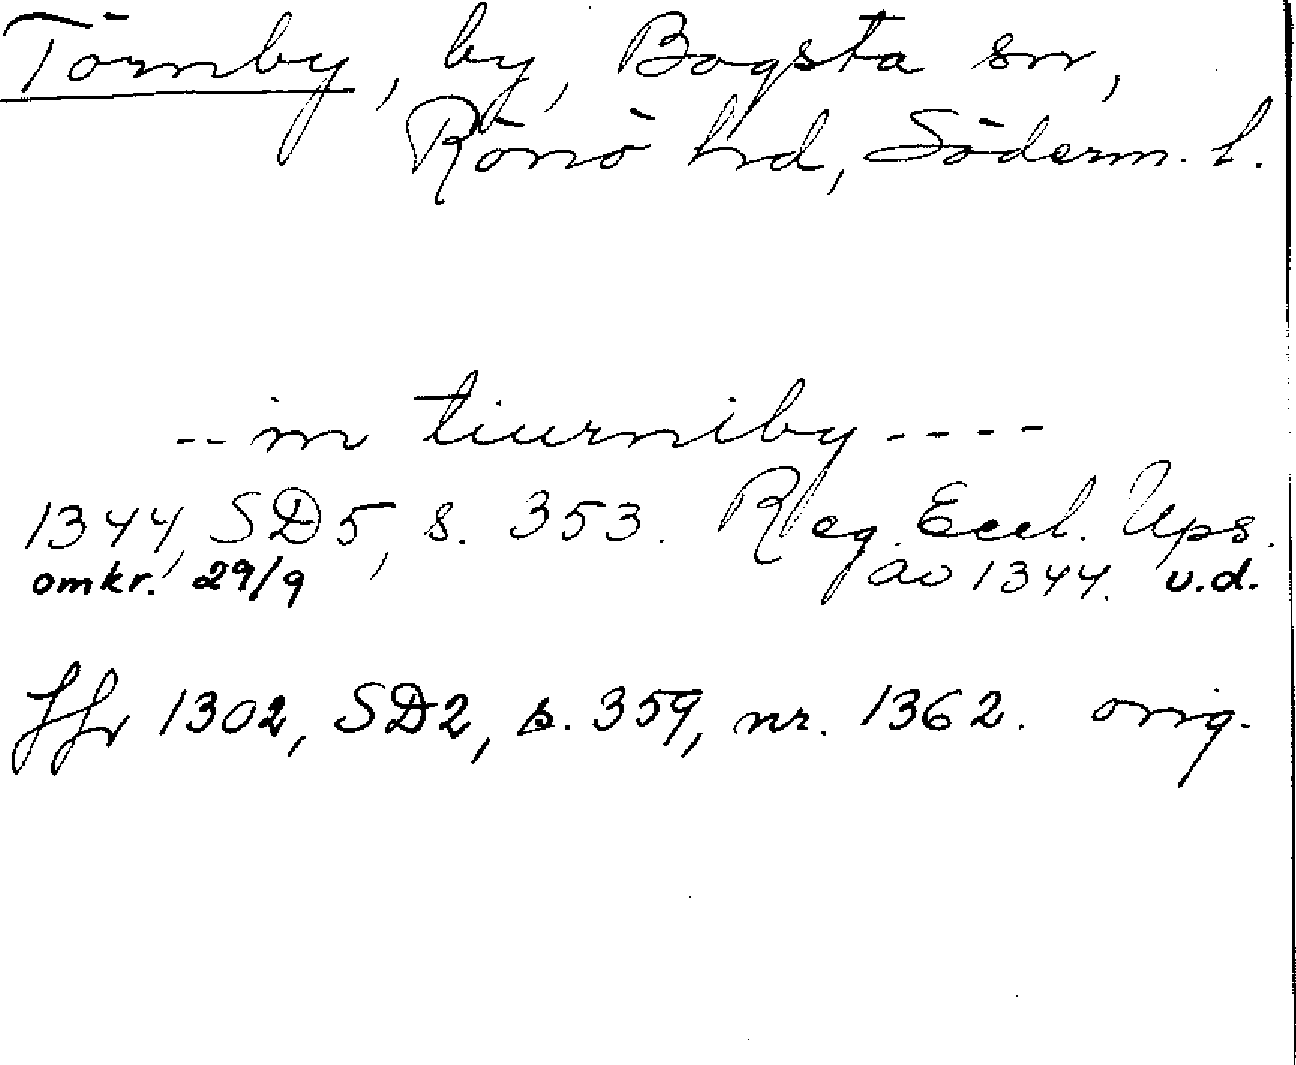 Törnby, by, Bogsta sn,
Rönö hd, Söderm. l.
--in tiurniby----
1344, SD5, s. 353. Reg. Eccl. Ups.
omkr. 29/9 av 1344. v.d.
Jfr 1302, SD2, s. 359, nr. 1362. orig.